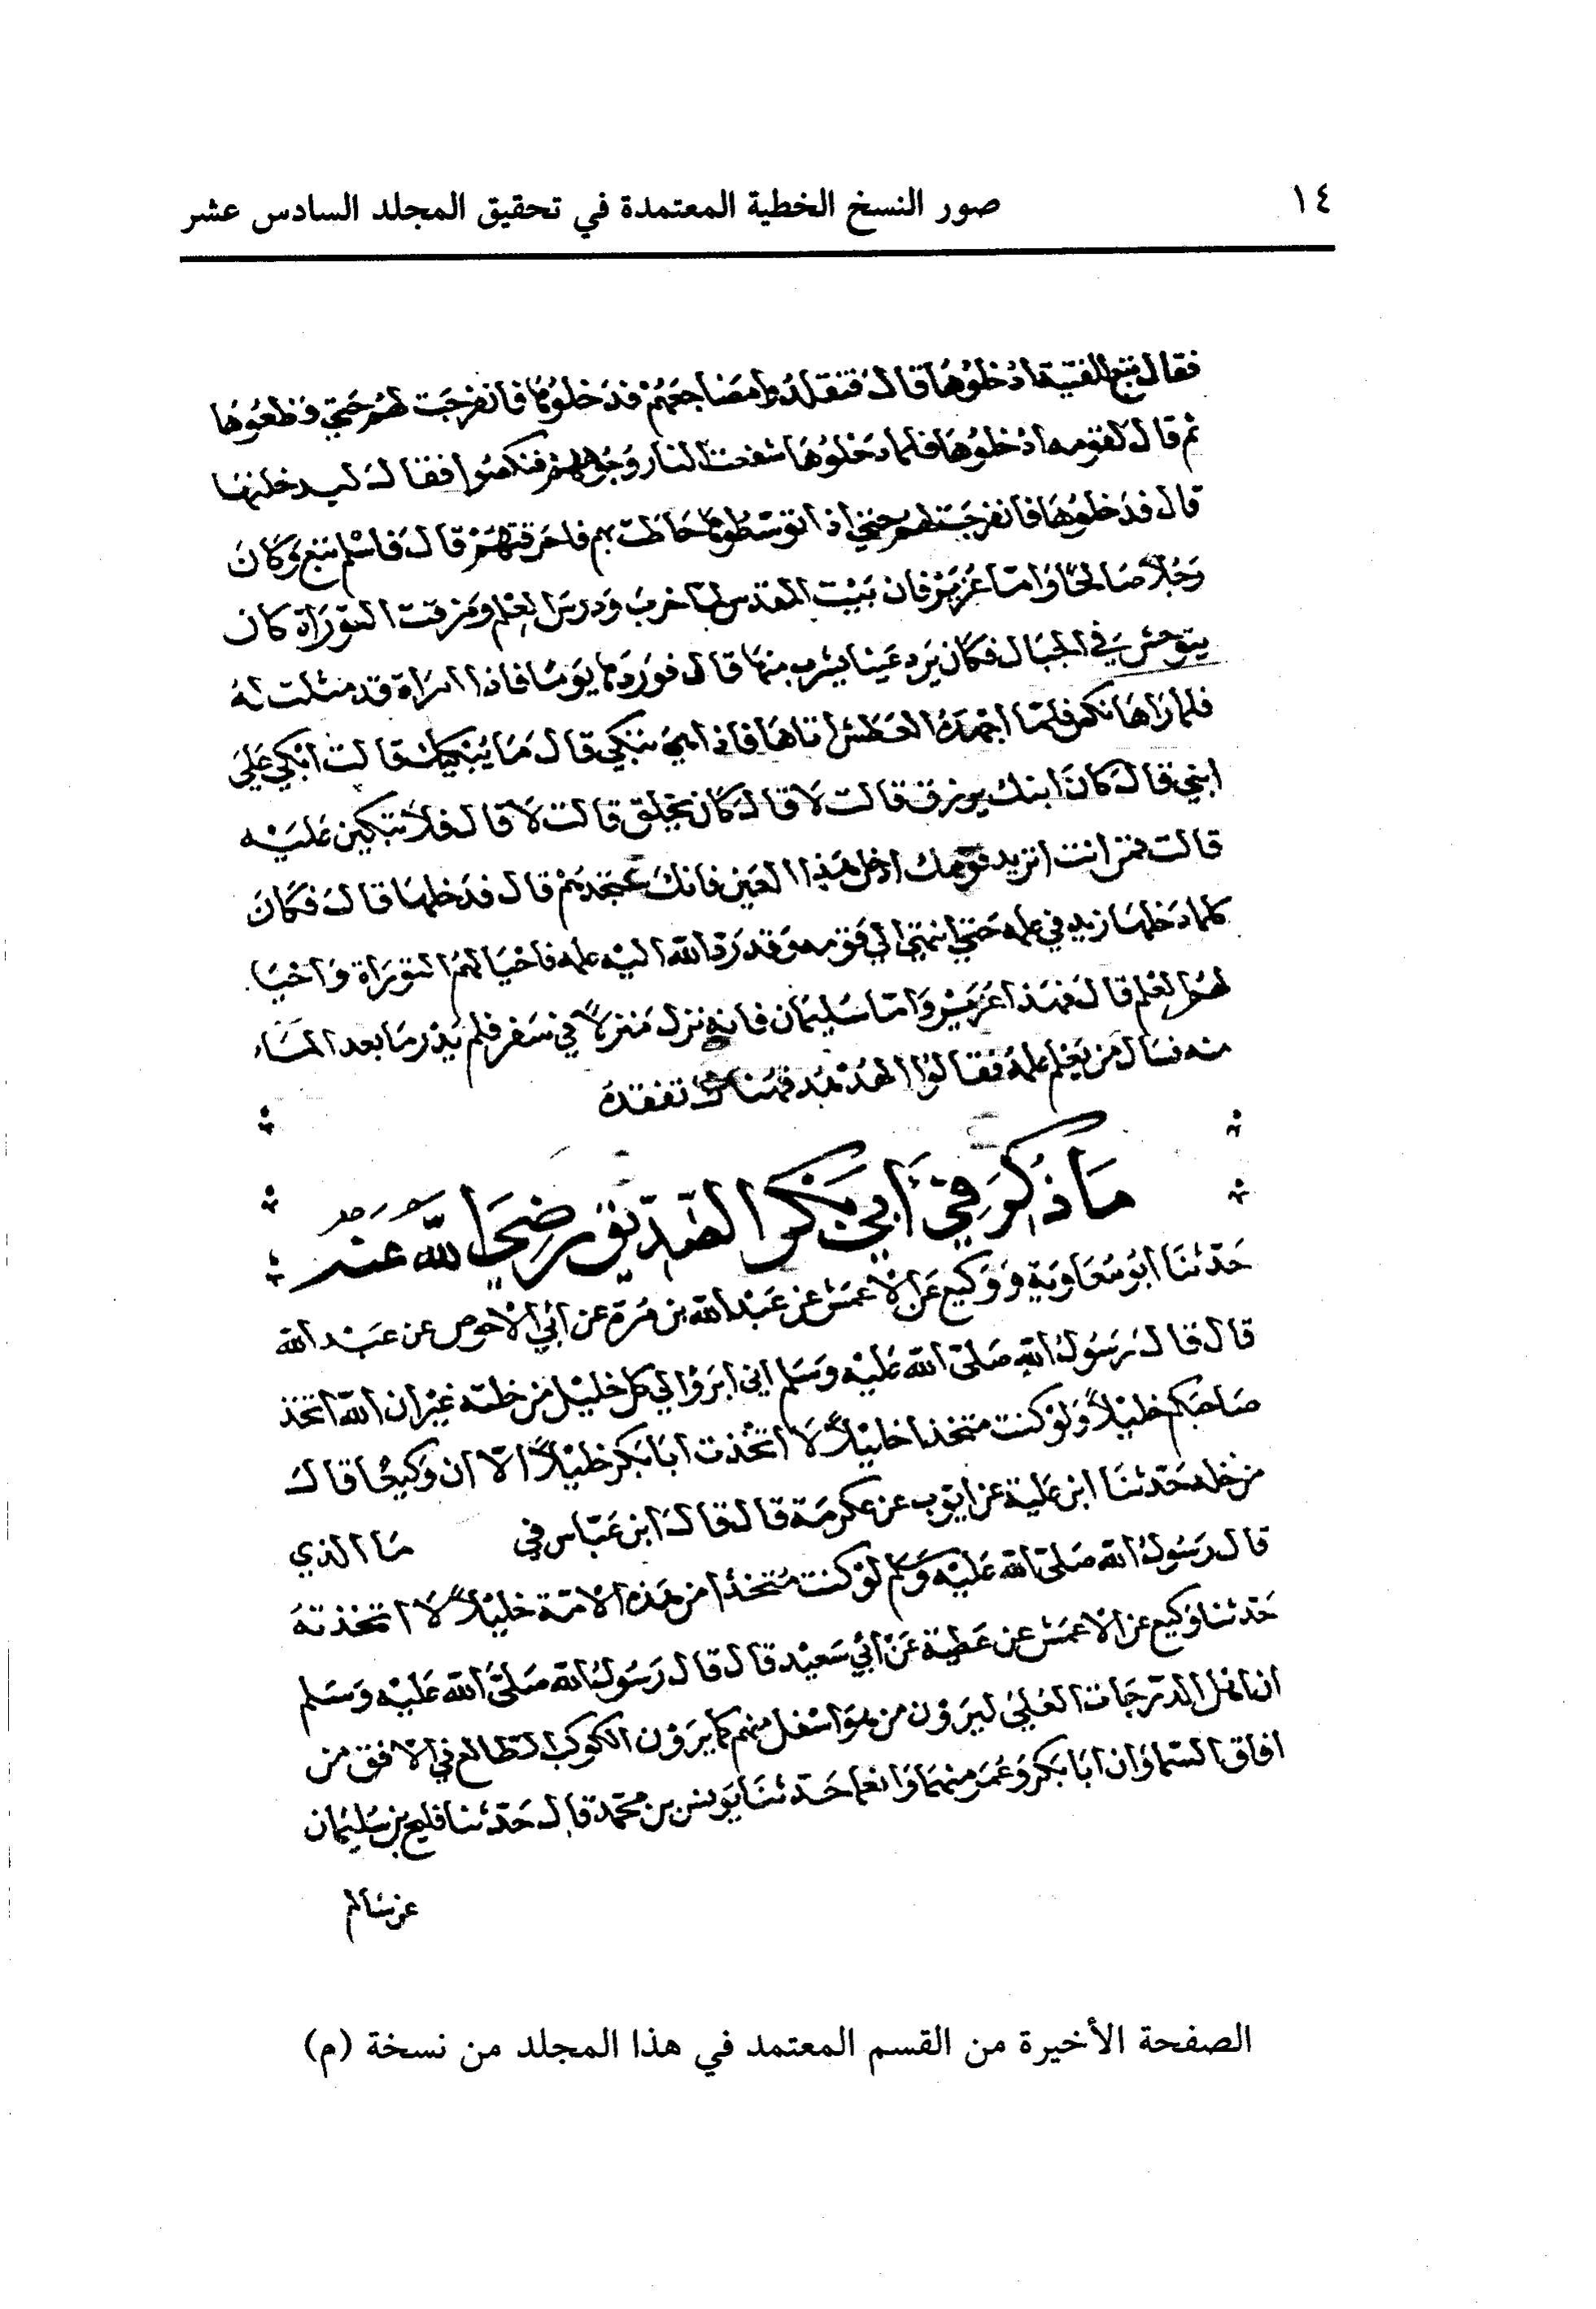 ١٤
صور النسخ الخطية المعتمدة في تحقيق المجلد السادس عشر
فقال تبع للفتية ادخلوها قال فتقلدوا مصاحفهم فدخلوها فانفرجت لهم حتى قطعوها
ثم قال لقومه ادخلوها فلما دخلوها سفعت النار وجوههم فنكصوا فقال ليدخلنها
قال فدخلوها فانفرجت لهم حتى اذا توسطوها احاطت بهم فاحرقتهم قال فاسلم تبع وكان
رجلا صالحا واما عزير فان بيت المقدس لما خرب ودرس العلم ومزقت التوراة كان
يتوحش في الجبال فكان يرد عينا يشرب منها قال فوردها يوما فاذا امراة قد مثلت له
فلما راها نكص فلما اجهده العطش اتاها فاذا هي تبكي قال ما يبكيك قالت ابكي على
ابني قال كان ابنك يرزق قالت لا قال كان يخلق قالت لا قال فلا تبكين عليه
قالت فمن انت اتريد قومك ادخل هذا العين فانك ستجدهم قال فدخلها قال فكان
كلما دخلها زيد في علمه حتى انتهى الى قومه وقد رد الله اليه علمه فاحيا لهم التوراة واحيا
لهم العلم قال فهذا عزير واما سليمان فانه نزل منزلا في سفر فلم يدر ما بعد الماء
منه فسال من يعلم علمه فقالوا الهدهد فهناك تفقده
ما ذكر في أبي بكر الصديق رضي الله عنه
حدثنا ابو معاوية ووكيع عن الاعمش عن عبد الله بن مرة عن ابي الاحوص عن عبد الله
قال قال رسول الله صلى الله عليه وسلم اني ابرؤ الى كل خليل من خلته غير ان الله اتخذ
صاحبكم خليلا ولو كنت متخذا خليلا لا اتخذت ابا بكر خليلا الا ان وكيعا قال
من خله حدثنا ابن علية عن ايوب عن عكرمة قال قال ابن عباس في ما الذي
قال رسول الله صلى الله عليه وسلم لو كنت متخذا من هذه الامة خليلا لا اتخذته
حدثنا وكيع عن الاعمش عن عطية عن ابي سعيد قال قال رسول الله صلى الله عليه وسلم
ان اهل الدرجات العلى ليرون من هو اسفل منهم كما يرون الكوكب الطالع في الافق من
افاق السماء وان ابا بكر وعمر منهما وانعما حدثنا يونس بن محمد قال حدثنا فليح بن سليمان
عن سالم
الصفحة الأخيرة من القسم المعتمد في هذا المجلد من نسخة (م)